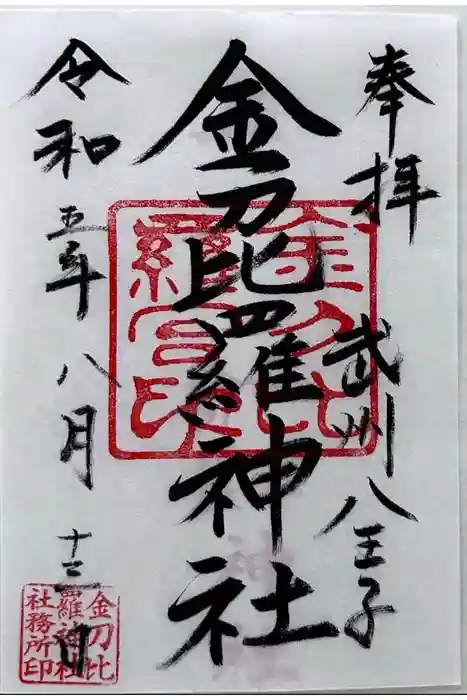 奉拝
武州八王子
金刀比羅神社
令和五年八月十二日
金刀比
羅神社
社務所印